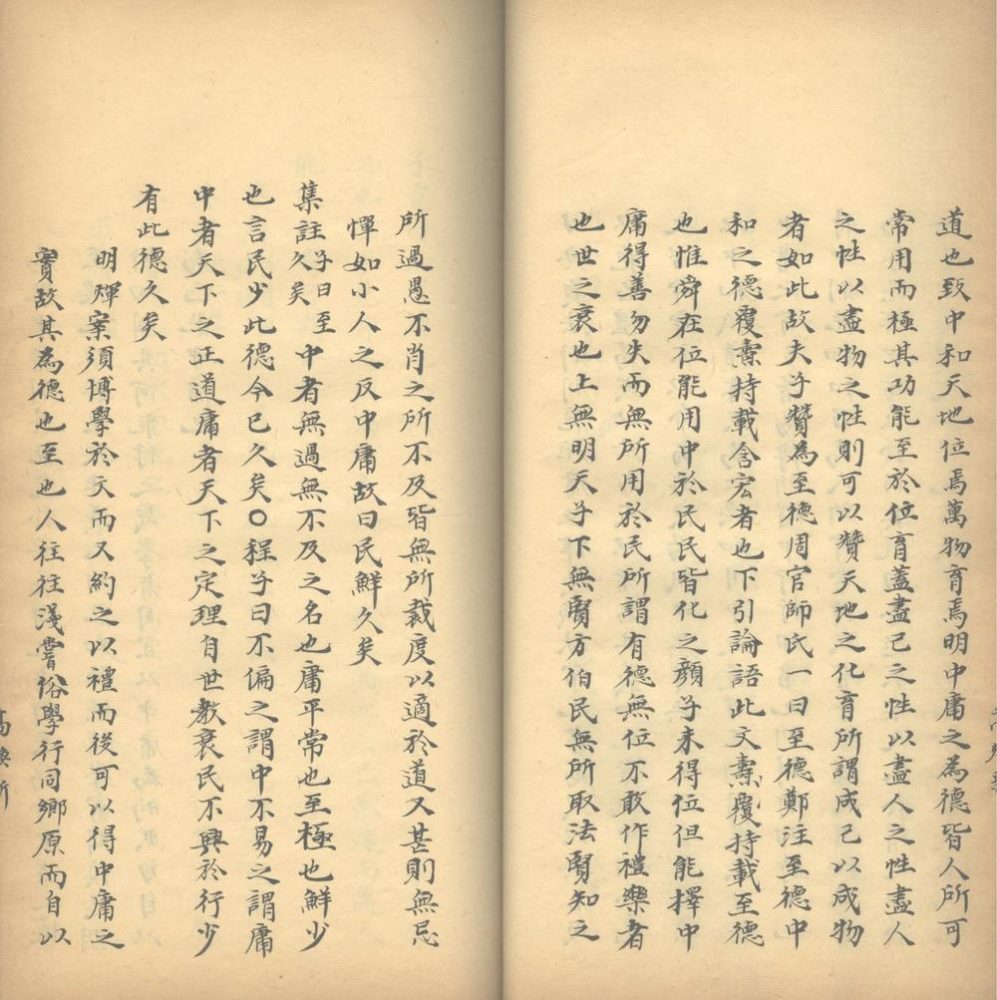 道也致中和天地位焉萬物育焉明中庸之為德皆人所可
常用而極其功能至於位育蓋盡己之性以盡人之性盡人
之性以盡物之性則可以贊天地之化育所謂成己以成物
者如此故夫子贊為至德周官師氏一曰至德鄭注至德中
和之德覆燾持載含宏者也下引論語此文燾覆持載至德
也惟舜在位能用中於民民皆化之顏子未得位但能擇中
庸得善勿失而無所用於民所謂有德無位不敢作禮樂者
也世之衰也上無明天子下無賢方伯民無所取法賢知之
所過愚不肖之所不及皆無所裁度以適於道又甚則無忌
憚如小人之反中庸故曰民鮮久矣
集註子曰至久矣中者無過無不及之名也庸平常也至極也鮮少
也言民少此德今已久矣〇程子曰不偏之謂中不易之謂庸
中者天下之正道庸者天下之定理自世教衰民不興於行少
有此德久矣
明煇案須博學於文而又約之以禮而後可以得中庸之
實故其為德也至也人往往淺嘗俗學行同鄉原而自以